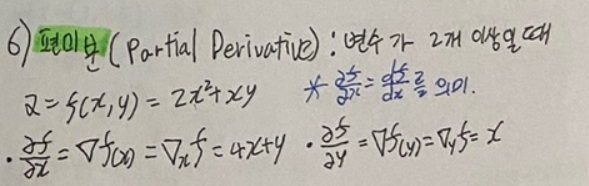 6) 편미분 (Partial Derivative) : 변수가 2개 이상일 때
z = f(x, y) = 2x² + xy * ∂f/∂x = df/dx 를 의미.
· ∂f/∂x = ∇f(x) = ∇ₓf = 4x+y · ∂f/∂y = ∇f(y) = ∇ᵧf = x